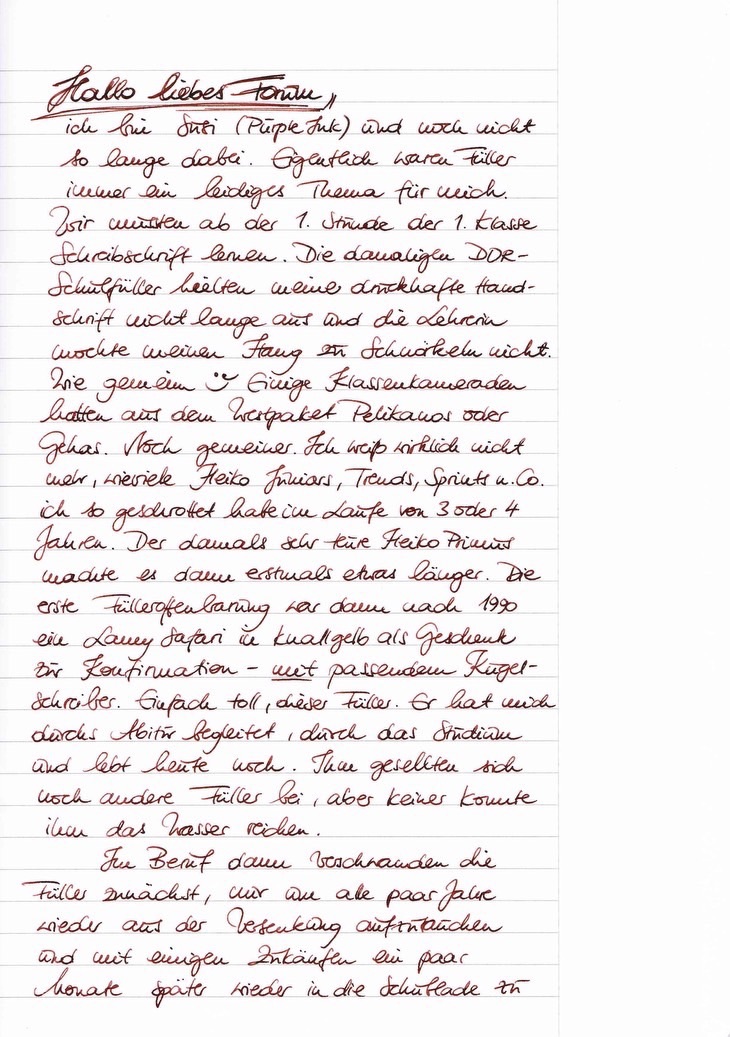 Hallo liebes Forum,,
ich bin Susi (PurpleInk) und noch nicht
so lange dabei. Eigentlich waren Füller
immer ein leidiges Thema für mich.
Wir mussten ab der 1. Stunde der 1. Klasse
Schreibschrift lernen. Die damaligen DDR-
Schulfüller hielten meine druckhafte Hand-
schrift nicht lange aus und die Lehrerin
mochte meinen Hang zu Schnörkeln nicht.
Wie gemein Einige Klassenkameraden
hatten aus dem Westpaket Pelikanos oder
Gehas. Noch gemeiner. Ich weiß wirklich nicht
mehr, wieviele Heiko Juniors, Trends, Sprints u. Co.
ich so geschrottet habe im Laufe von 3 oder 4
Jahren. Der damals sehr teure Heiko Primus
machte es dann erstmals etwas länger. Die
erste Fülleroffenbarung war dann nach 1990
ein Lamy Safari in knallgelb als Geschenk
zur Konfirmation - mit passendem Kugel-
schreiber. Einfach toll, dieser Füller. Er hat mich
durchs Abitur begleitet, durch das Studium
und lebt heute noch. Ihm gesellten sich
noch andere Füller bei, aber keiner konnte
ihm das Wasser reichen.
Im Beruf dann verschwanden die
Füller zunächst, nur um alle paar Jahre
wieder aus der Versenkung aufzutauchen
und mit einigen Zukäufen ein paar
Monate später wieder in die Schublade zu